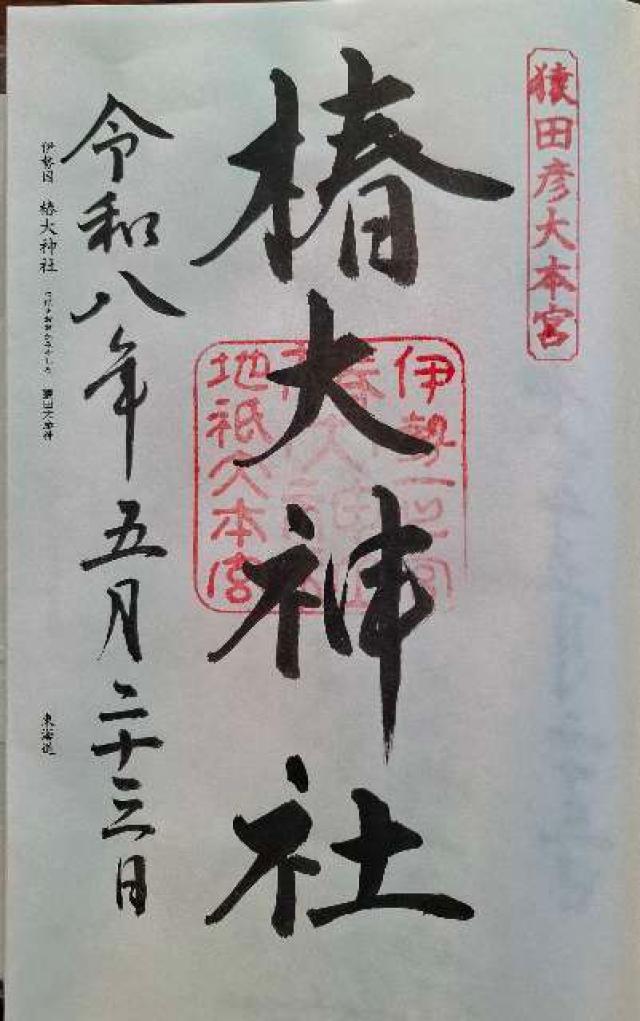 猿田彦大本宮
伊勢一之宮
地祇大本宮
椿大神社
令和八年五月二十三日
伊勢国 椿大神社
東海道